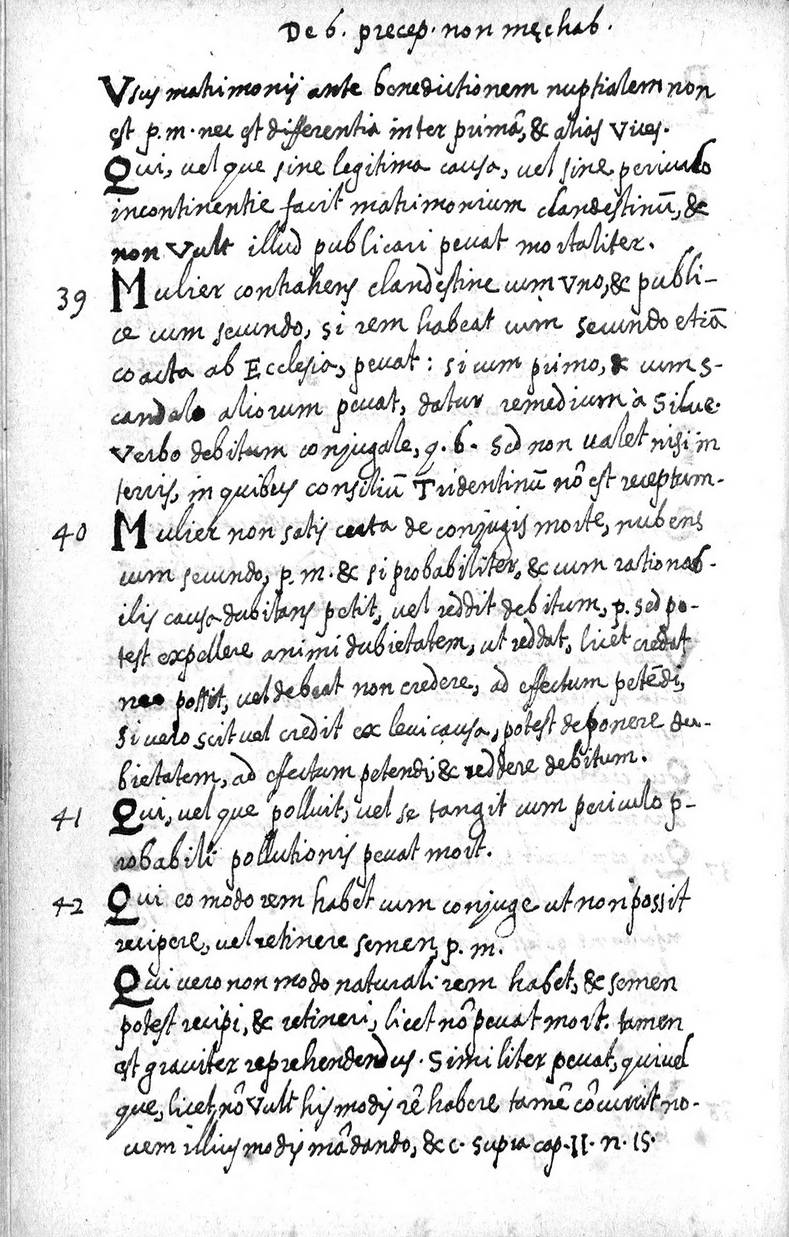 De 6. precep. non męchab.
Vsus matrimonij ante benedictionem nuptialem non
est p.m. nec est differentia inter primâ, & alias vices.
Qui, vel que sine legitima causa, vel sine periculo
incontinentie facit matrimonium clandestinū, &
non vult illud publicari pecat mortaliter.
39 Mulier contrahens clandestine cum vno, & publi-
ce cum secundo, si rem habeat cum secundo etiā
coacta ab Ecclesia, pecat: si cum primo, & cum s-
candalo aliorum pecat, datur remedium à Silue.
Verbo debitum conjugale, q. 6. Sed non valet nisi in
terris, in quibus consiliū Tridentinū nô est receptum.
40 Mulier non satis certa de conjugis morte, nubens
cum secundo, p. m. & si probabiliter, & cum rationab-
ilis causa dubitans petit, vel reddit debitum, p. Sed po-
test expellere animi dubietatem, ut reddat, licet credat
nec possit, vel debeat non credere, ad effectum petēdi,
Si vero scit vel credit ex levi causa, potest deponere du-
bietatem, ad effectum petendi, & reddere debitum.
41 Qui, vel que polluit, vel se tangit cum periculo p-
robabili pollutionis pecat mort.
42 Qui eo modo rem habet cum conjuge ut non possit
recipere, vel retinere semen, p. m.
Qui vero non modo naturali rem habet, & semen
potest recipi, & retineri, licet nô pecat mort. tamen
est graviter reprehendendus. Similiter pecat, qui vel
que, licet nô vult his modis rê habere tamê côcurrit no-
uem illius modis mâdando, &c. supra cap. II. n. 15.